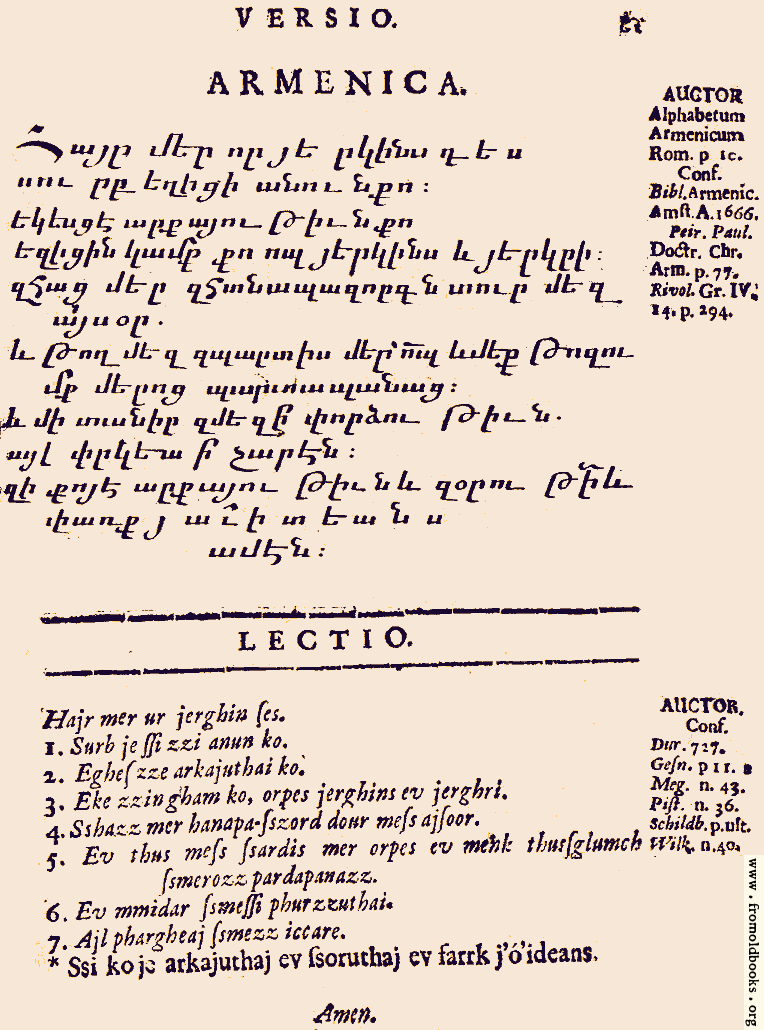 VERSIO.
ARMENICA.
Հայր մեր որ յե րկինս դ ե ս
սու րբ եղիցի անու ն քո :
եկեսցէ արքայու թիւն քո
եղիցին կամք քո որպ յերկինս և յերկրի :
զհաց մեր զհանապազորդ ն տուր մե զ
այսօր .
և թող մե զ զպարտիս մեր որպ և մեք թողու
մք մերոց պարտապանաց :
և մի տանիր զմեզ ի փորձու թիւն .
այլ փրկեա ի չարէն :
զի քոյէ արքայու թիւն և զօրու թի և
փառք յ ա ւ ի տ ե ա ն ս
ամէն :
AUCTOR
Alphabetum
Armenicum
Rom. p 1c.
Conf.
Bibl. Armenic.
Amſt. A. 1666.
Petr. Paul.
Doctr. Chr.
Arm. p. 77.
Rivol. Gr. IV.
14. p. 294.
LECTIO.
Hajr mer ur jerghin ſes.
1. Surb je ſſi zzi anun ko.
2. Egheſ zze arkajuthai ko.
3. Eke zzingham ko, orpes jerghins ev jerghri.
4. Sshazz mer hanapa-ſszord dour meſs ajſoor.
5. Ev thus meſs ſsardis mer orpes ev menk thusſglumch
ſsmerozz pardapanazz.
6. Ev mmidar ſsmeſſi phurzzuthai.
7. Ajl phargheaj ſsmezz iccare.
* Ssi ko je arkajuthaj ev ſsoruthaj ev farrk j'ó'ideans.
Amen.
AUCTOR.
Conf.
Dur. 727.
Geſn. p 11.
Meg. n. 43.
Piſt. n. 36.
Schildb. p. ult.
Wilk. n. 40.
www.fromoldbooks.org